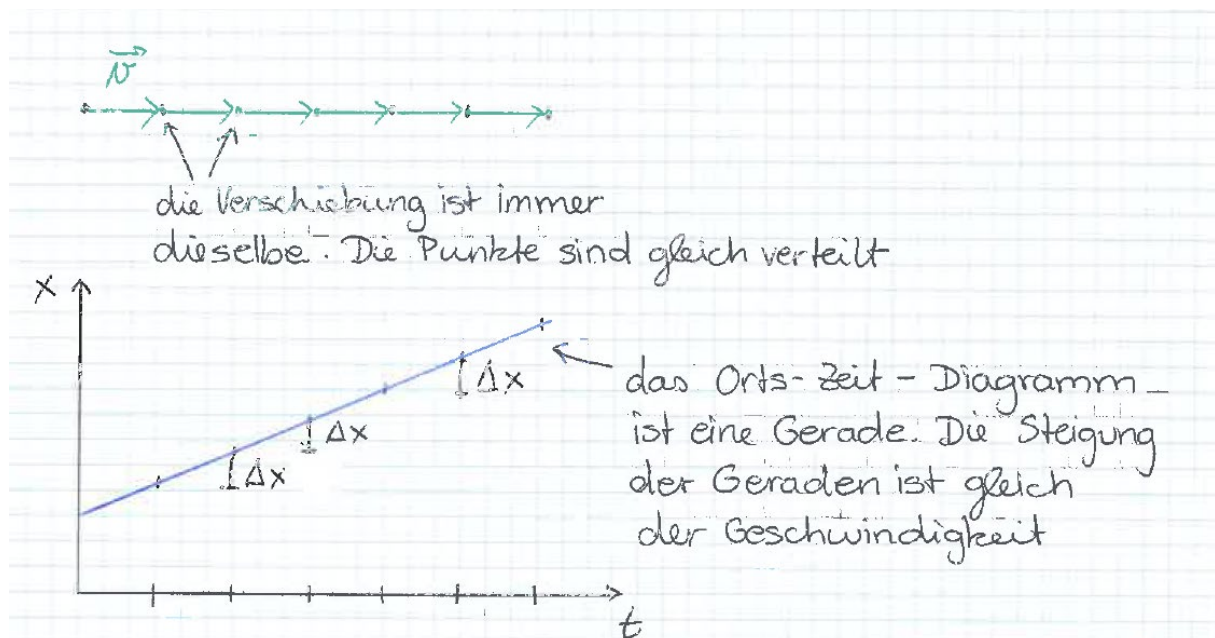 v
die Verschiebung ist immer
dieselbe. Die Punkte sind gleich verteilt
x
Δx
das Orts-Zeit-Diagramm
Δx
ist eine Gerade. Die Steigung
Δx
der Geraden ist gleich
der Geschwindigkeit
t